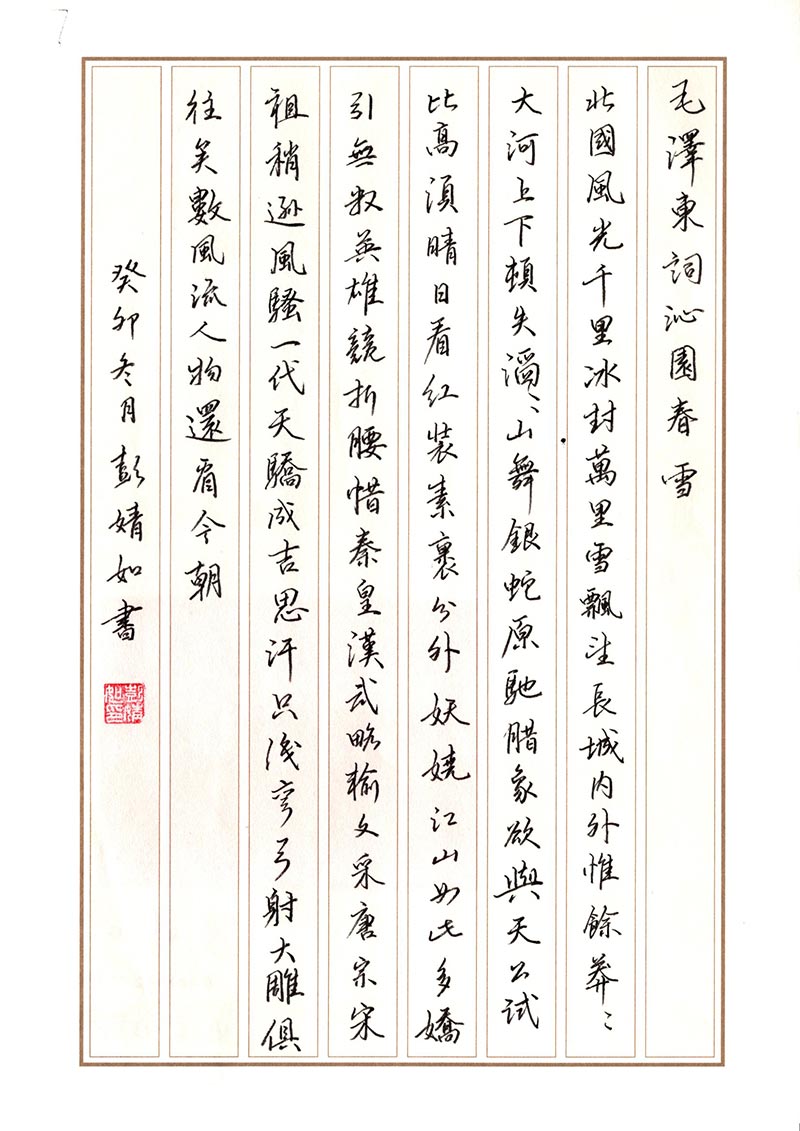 毛澤東詞沁園春雪
北國風光千里冰封萬里雪飄望長城内外惟餘莽〻
大河上下頓失滔〻山舞銀蛇原馳腊象欲與天公試
比高須晴日看紅裝素裹分外妖嬈江山如此多嬌
引無数英雄競折腰惜秦皇漢武略輸文采唐宗宋
祖稍遜風騷一代天驕成吉思汗只識彎弓射大雕俱
往矣數風流人物還看今朝
癸卯冬月彭婧如書
彭婧如印